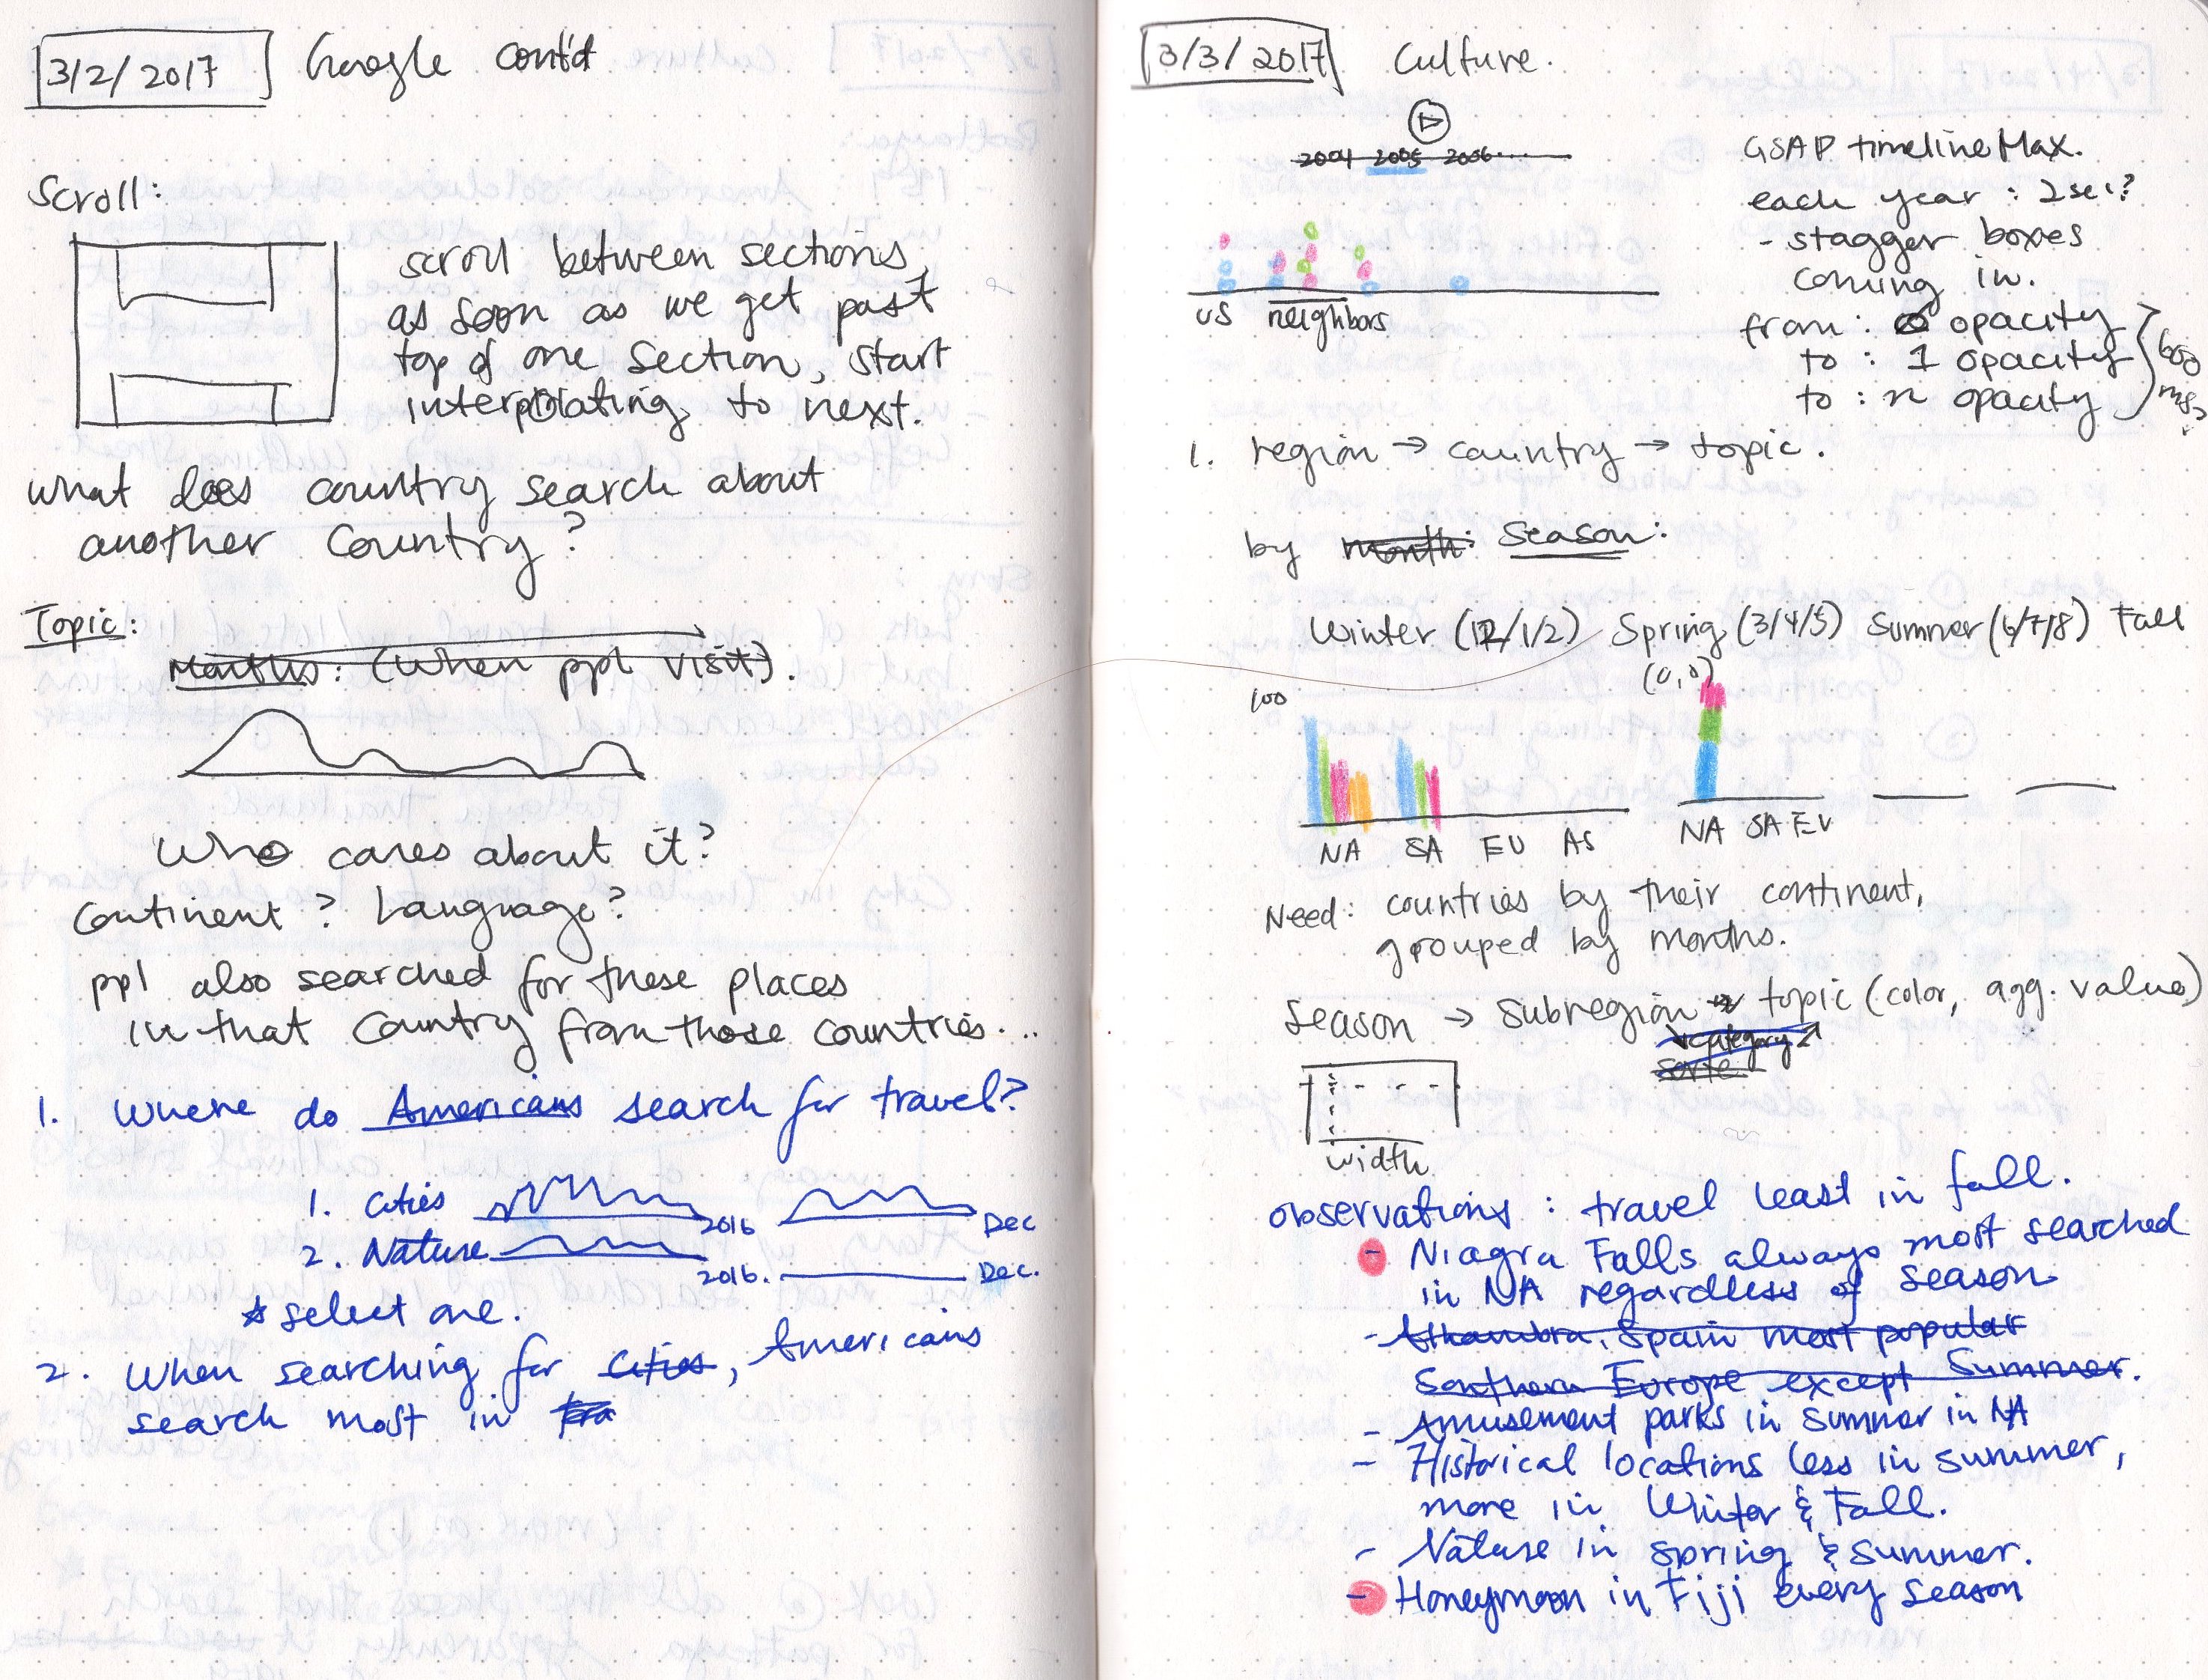 3/2/2017 Google cont'd
Scroll:
scroll between sections,
as soon as we get past
top of one section, start
interpolating to next.
what does country search about
another country?
Topic:
Months: (when ppl visit).
Who cares about it?
Continent? Language?
ppl also searched for these places
in that country from those countries...
1. Where do Americans search for travel?
1. Cities 2016 Dec
2. Nature 2016. Dec.
* select one.
2. When searching for cities, Americans
search most in
3/3/2017 Culture.
2004 2005 2006....
US neighbors
GSAP timelineMax.
each year : 2sec?
- stagger boxes
coming in.
from : 0 opacity
to : 1 opacity
to : n opacity
600
ms?
1. region → country → topic.
by month: Season:
Winter (12/1/2) Spring (3/4/5) Summer (6/7/8) Fall
(0,0)
100
NA SA EU AS
NA SA EU
Need: countries by their continent,
grouped by months.
Season → Subregion → topic (color, agg. value)
category
width
observations : travel least in fall.
- Niagra Falls always most searched
in NA regardless of season
- Alhambra, Spain most popular
Southern Europe except Summer.
- Amusement parks in summer in NA
- Historical locations less in summer,
more in Winter & Fall.
- Nature in spring & summer.
- Honeymoon in Fiji every season